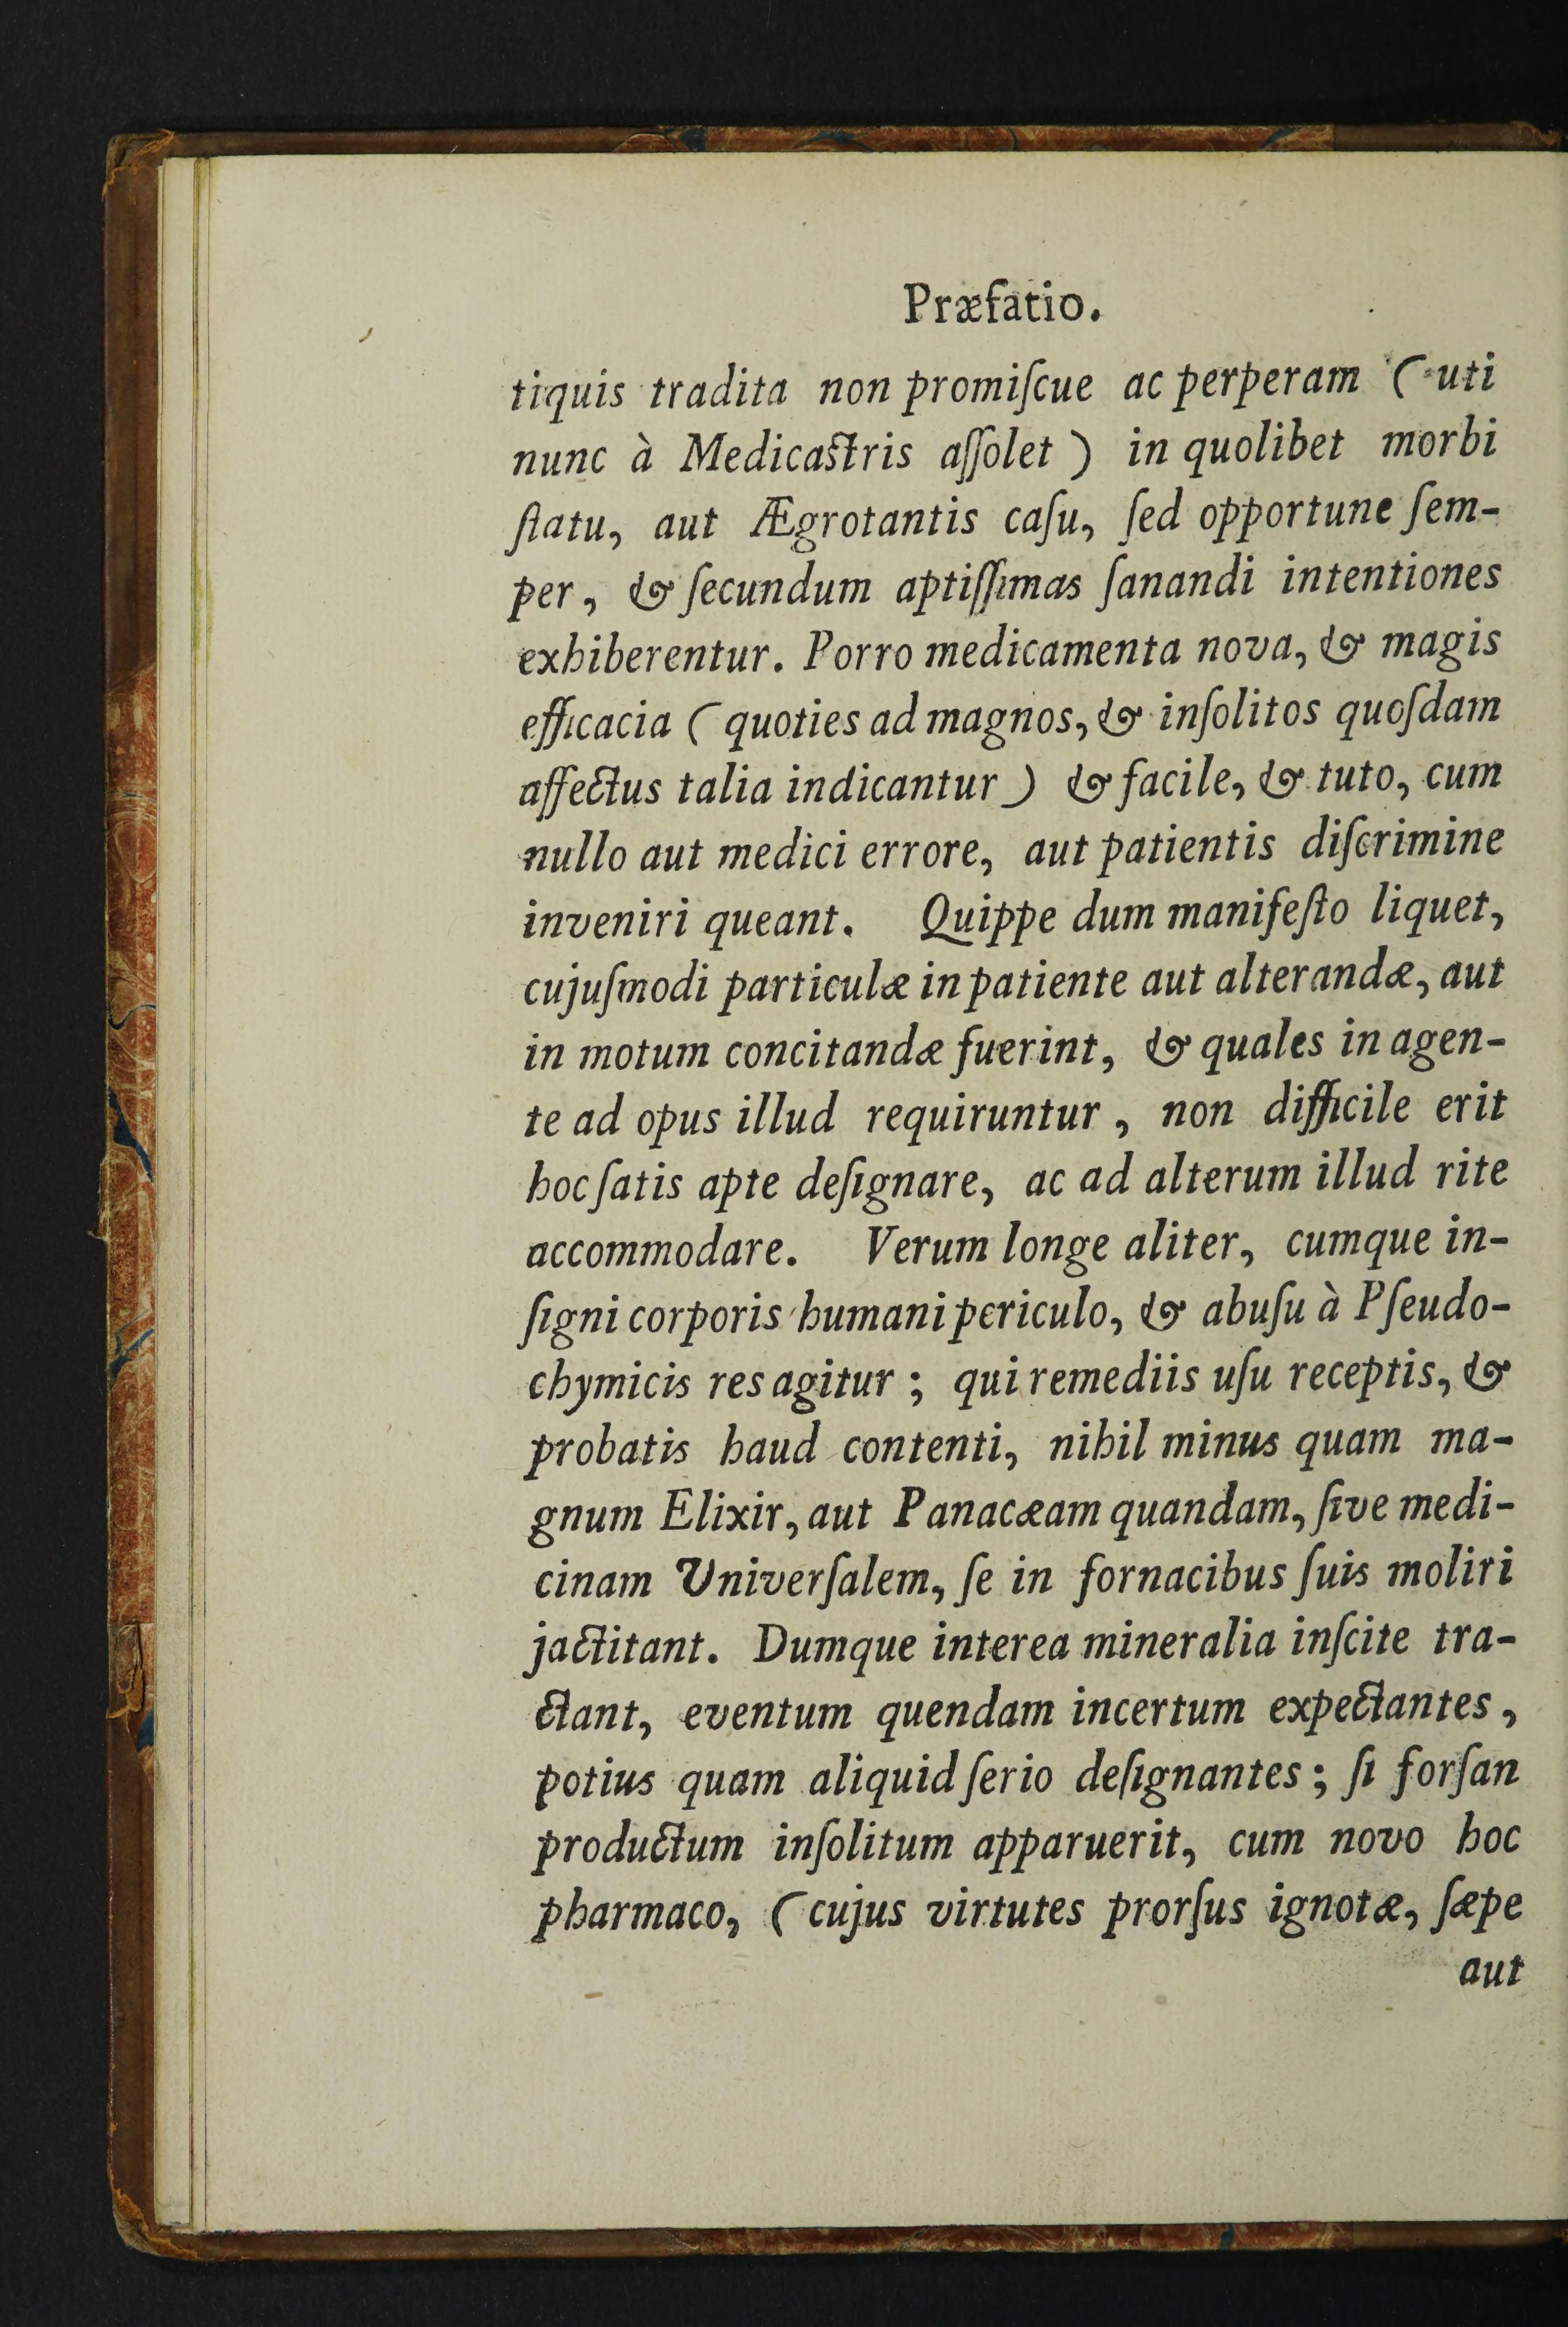 Præfatio.
tiquis tradita non promiſcue ac perperam ( uti
nunc à Medicaſtris aſſolet ) in quolibet morbi
ſtatu, aut Ægrotantis caſu, ſed opportune ſem-
per, & ſecundum aptiſſimas ſanandi intentiones
exhiberentur. Porro medicamenta nova, & magis
efficacia ( quoties ad magnos, & inſolitos quoſdam
affectus talia indicantur ) & facile, & tuto, cum
nullo aut medici errore, aut patientis diſcrimine
inveniri queant. Quippe dum manifeſto liquet,
cujuſmodi particulæ in patiente aut alterandæ, aut
in motum concitandæ fuerint, & quales in agen-
te ad opus illud requiruntur, non difficile erit
hoc ſatis apte deſignare, ac ad alterum illud rite
accommodare. Verum longe aliter, cumque in-
ſigni corporis humani periculo, & abuſu à Pſeudo-
chymicis res agitur ; qui remediis uſu receptis, &
probatis haud contenti, nihil minus quam ma-
gnum Elixir, aut Panacæam quandam, ſive medi-
cinam Univerſalem, ſe in fornacibus ſuis moliri
jactitant. Dumque interea mineralia inſcite tra-
ctant, eventum quendam incertum expectantes,
potius quam aliquid ſerio deſignantes ; ſi forſan
productum inſolitum apparuerit, cum novo hoc
pharmaco, ( cujus virtutes prorſus ignotæ, ſæpe
aut